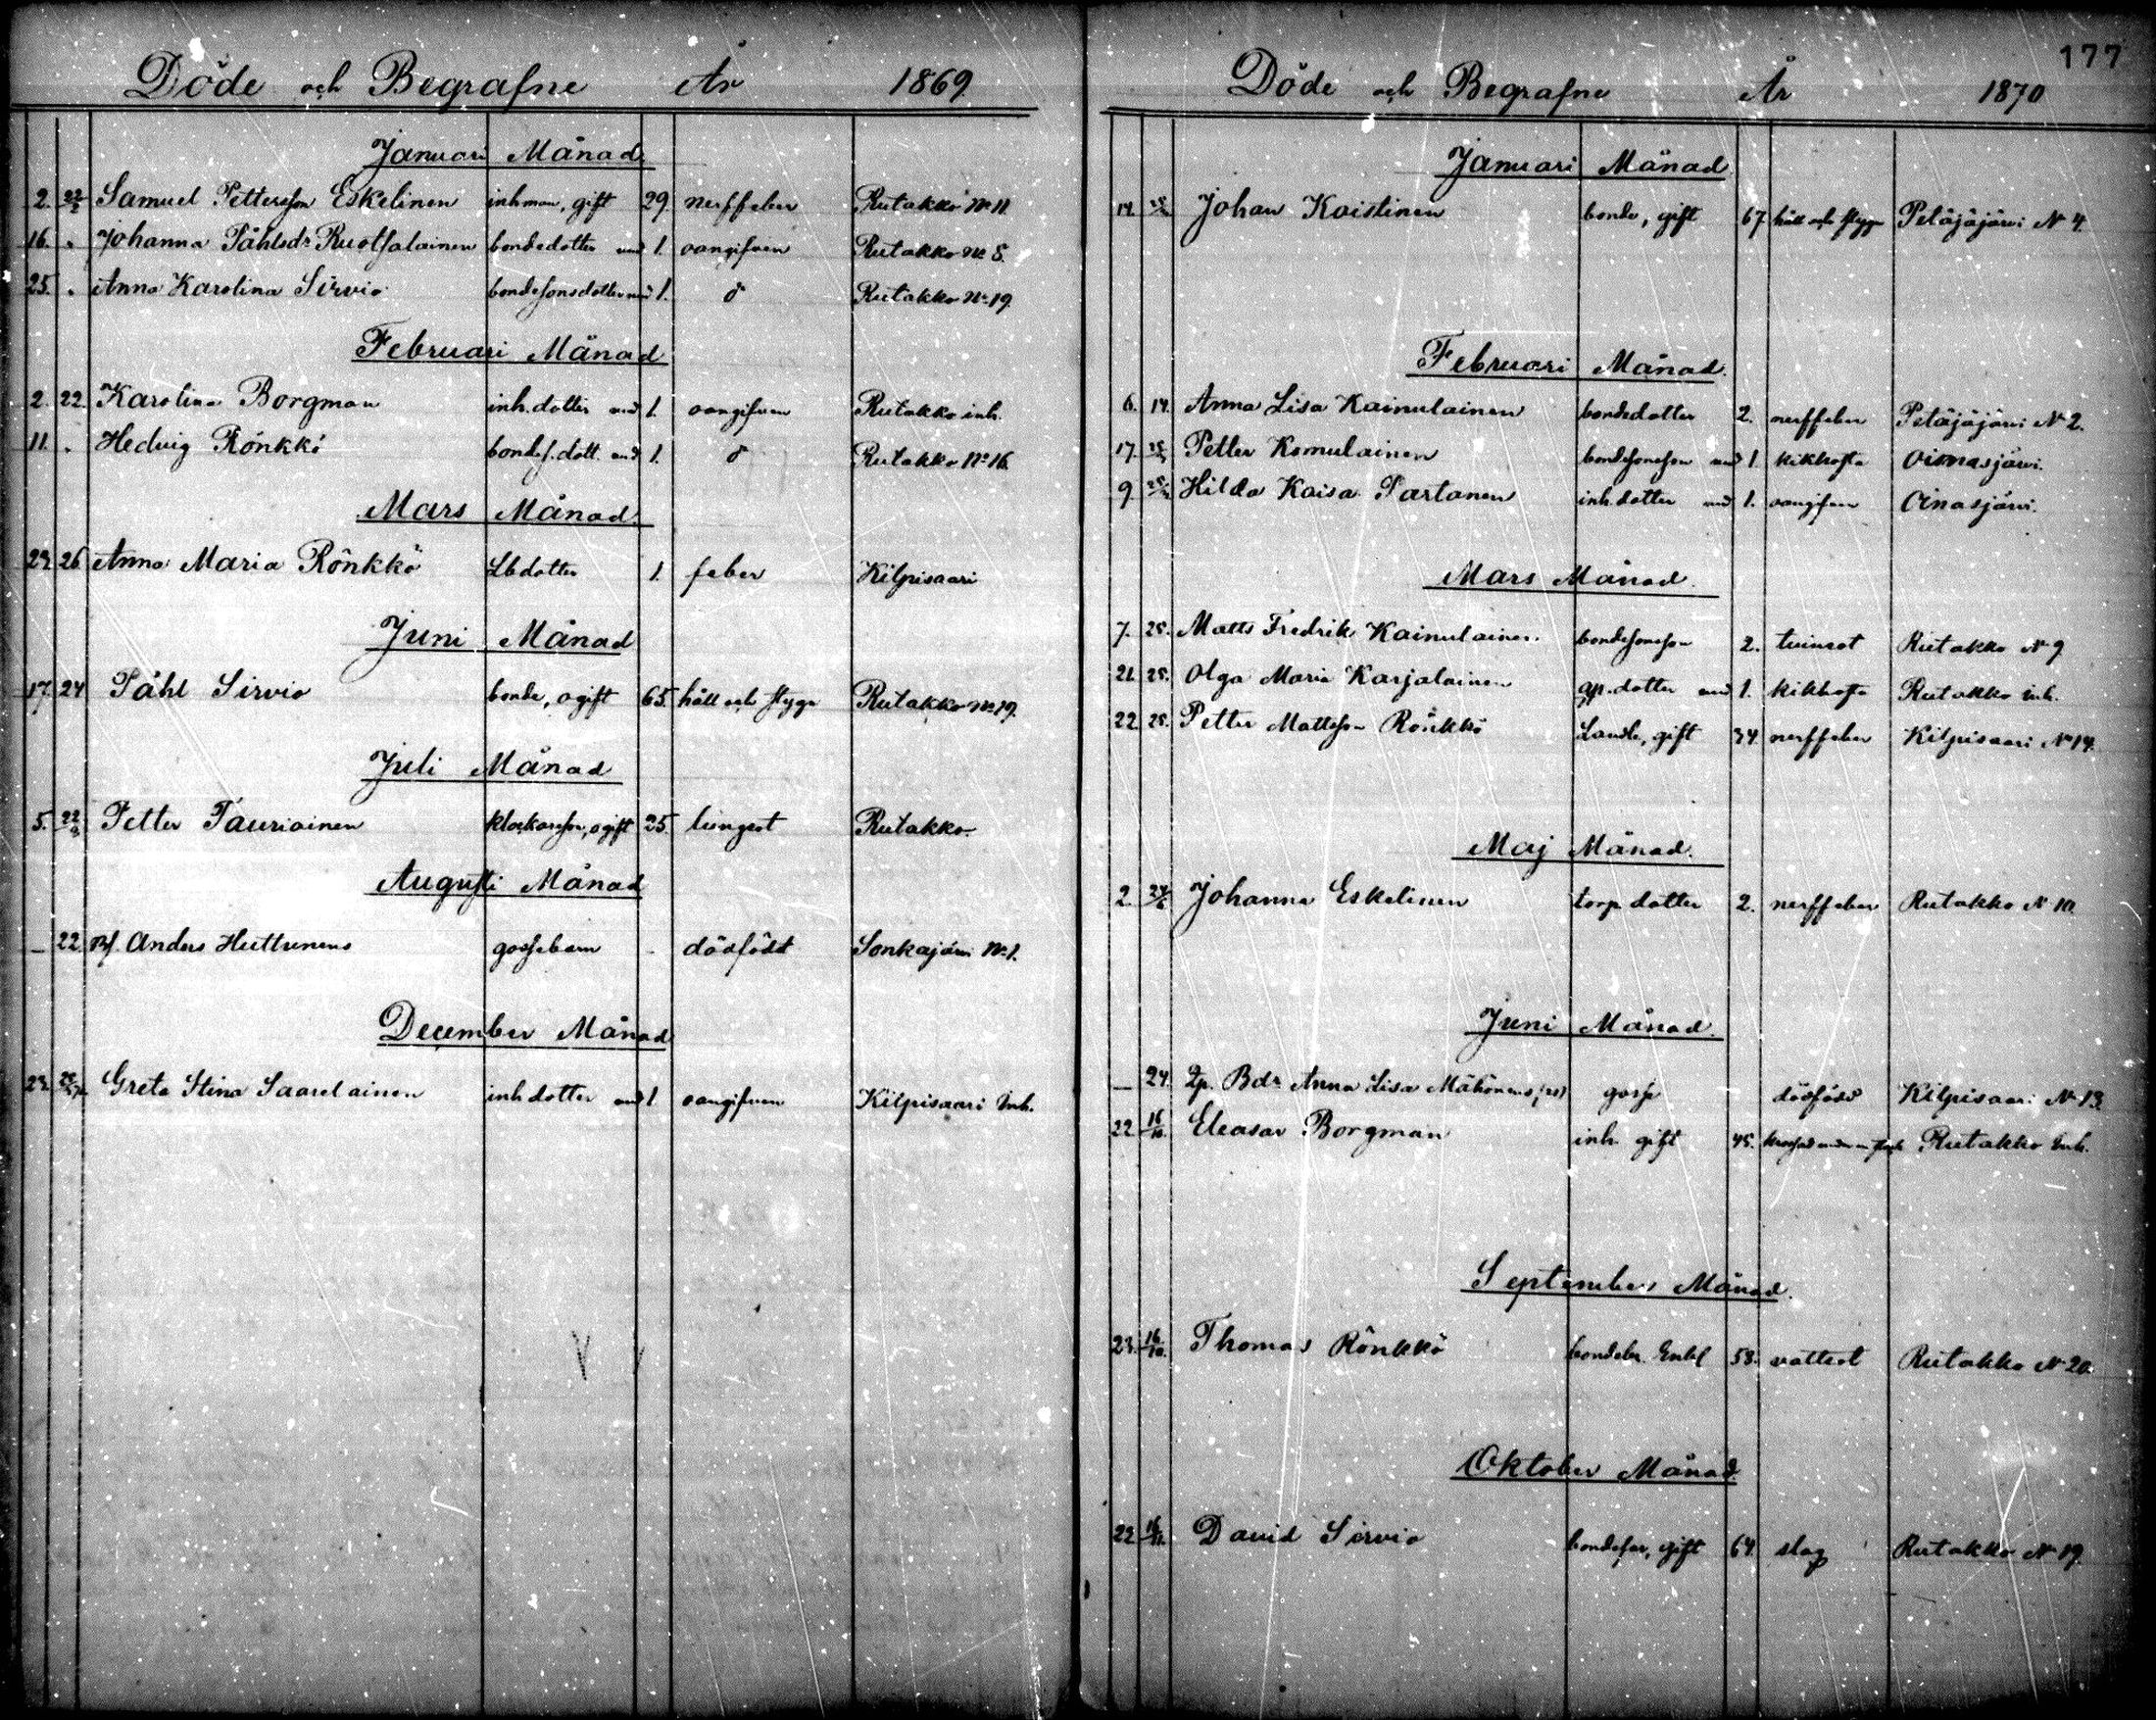 Döde och Begrafne År 1869
Januari Månad
2. 22/2 Samuel Pettersson Eskelinen inhman, gift 29. nerffeber Rutakko No 11.
16. " Johanna Påhlsdr Ruotsalainen bondedotter und 1. oangifven Rutakko No 5.
25. " Anna Karolina Sirviö bondesonsdotter und 1. d Rutakko No 19.
Februari Månad
2. 22. Karolina Borgman inh. dotter und 1. oangifven Rutakko inh.
11. " Hedvig Rönkkö bondes. dott. und 1. d Rutakko No 16.
Mars Månad
23. 26 Anna Maria Rönkkö Lbdotter 1. feber Kilpisaari
Juni Månad
17. 24 Påhl Sirviö bonde, ogift 65. håll och stygn Rutakko No 19.
Juli Månad
5. 22/8 Petter Tauriainen klockarson, ogift 25. lungsot Rutakko.
Augusti Månad
— 22. Bf. Anders Huttunens gossebarn - dödfödt Sonkajärvi No 1.
December Månad
23. Greta Stina Saarelainen inh dotter und 1 oangifven Kilpisaari Inh.
177
Döde och Begrafne År 1870
Januari Månad
14. Johan Koistinen bonde, gift 67 håll och stygn Petäjäjärvi N 4.
Februari Månad.
6. 14. Anna Lisa Kainulainen bondedotter 2. nerffeber Petäjäjärvi N 2.
17. Petter Komulainen bondesonson und 1. kikhosta Oinasjärvi.
9 Hilda Kaisa Partanen inh. dotter und 1. oangifven Oinasjärvi.
Mars Månad.
7. 25. Matts Fredrik Kainulainen bondesonson 2. tvinsot Rutakko N 9
21. 25. Olga Maria Karjalainen dotter und 1. kikhosta Rutakko Inh.
22. 25. Petter Mattsson Rönkkö Landb, gift 34. nerffeber Kilpisaari No 14.
Maj Månad.
2. 24/6 Johanna Eskelinen torp dotter 2. nerffeber Rutakko N 10.
Juni Månad.
— 24. Qp. Bdr Anna Lisa Mähönens gosse dödfödd Kilpisaari N 13.
22 16/10. Eleasar Borgman inh. gift 45. krossad under en Rutakko Inh.
September Månad.
23. 16/10. Thomas Rönkkö bondebr. Enkl 58. vattsot Rutakko N 20.
Oktober Månad.
22. 16/11. David Sirviö bondefar, gift 64. slag Rutakko N 19.